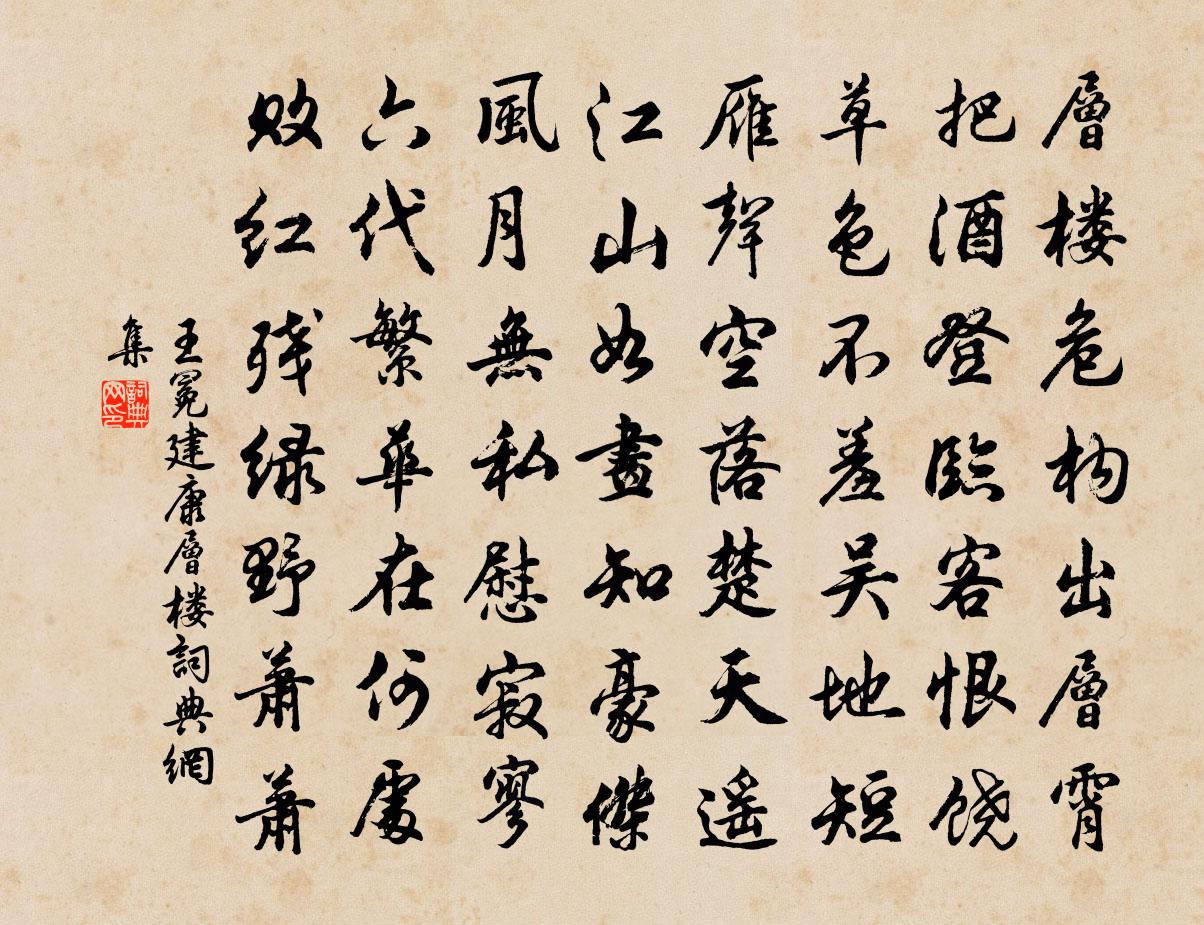 層楼危构出層霄
把酒登臨客恨饶
草色不羞吴地短
雁聲空落楚天遥
江山如畫知豪傑
風月無私慰寂寥
六代繁華在何處
败红残绿野萧萧
王冕建康層楼詞典網
集
詞典
网印